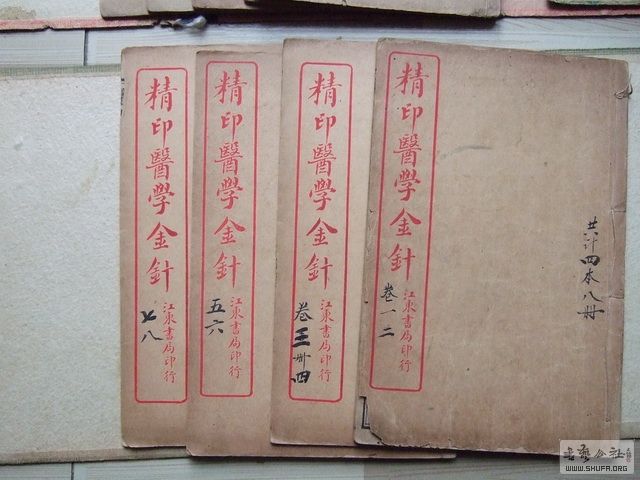 精印醫學金針
江東書局印行
卷一二
共计四本八冊
精印醫學金針
江東書局印行
卷三卌四
精印醫學金針
江東書局印行
五六
精印醫學金針
江東書局印行
七八
書藝公社
WWW.SHUFA.ORG